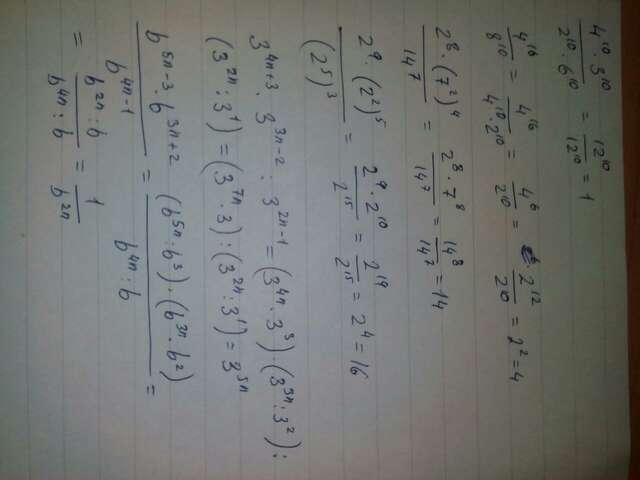 4¹⁰·3¹⁰ / 2¹⁰·6¹⁰ = 12¹⁰ / 12¹⁰ = 1
4¹⁶ / 8¹⁰ = 4¹⁶ / 4¹⁰·2¹⁰ = 4⁶ / 2¹⁰ = 2¹² / 2¹⁰ = 2² = 4
2⁸·(7²)⁴ / 14⁷ = 2⁸·7⁸ / 14⁷ = 14⁸ / 14⁷ = 14
2⁹·(2²)⁵ / (2⁵)³ = 2⁹·2¹⁰ / 2¹⁵ = 2¹⁹ / 2¹⁵ = 2⁴ = 16
3⁴ⁿ⁺³·3³ⁿ⁻²·3²ⁿ⁻¹ = (3⁴ⁿ·3³)·(3³ⁿ:3²):
(3²ⁿ:3¹) = (3⁷ⁿ·3):(3²ⁿ:3¹) = 3⁵ⁿ
b⁵ⁿ⁻³ b³ⁿ⁺² / b⁴ⁿ⁻¹ = (b⁵ⁿ:b³)·(b³ⁿ·b²) / b⁴ⁿ:b =
= b²ⁿ:b / b⁴ⁿ:b = 1 / b²ⁿ